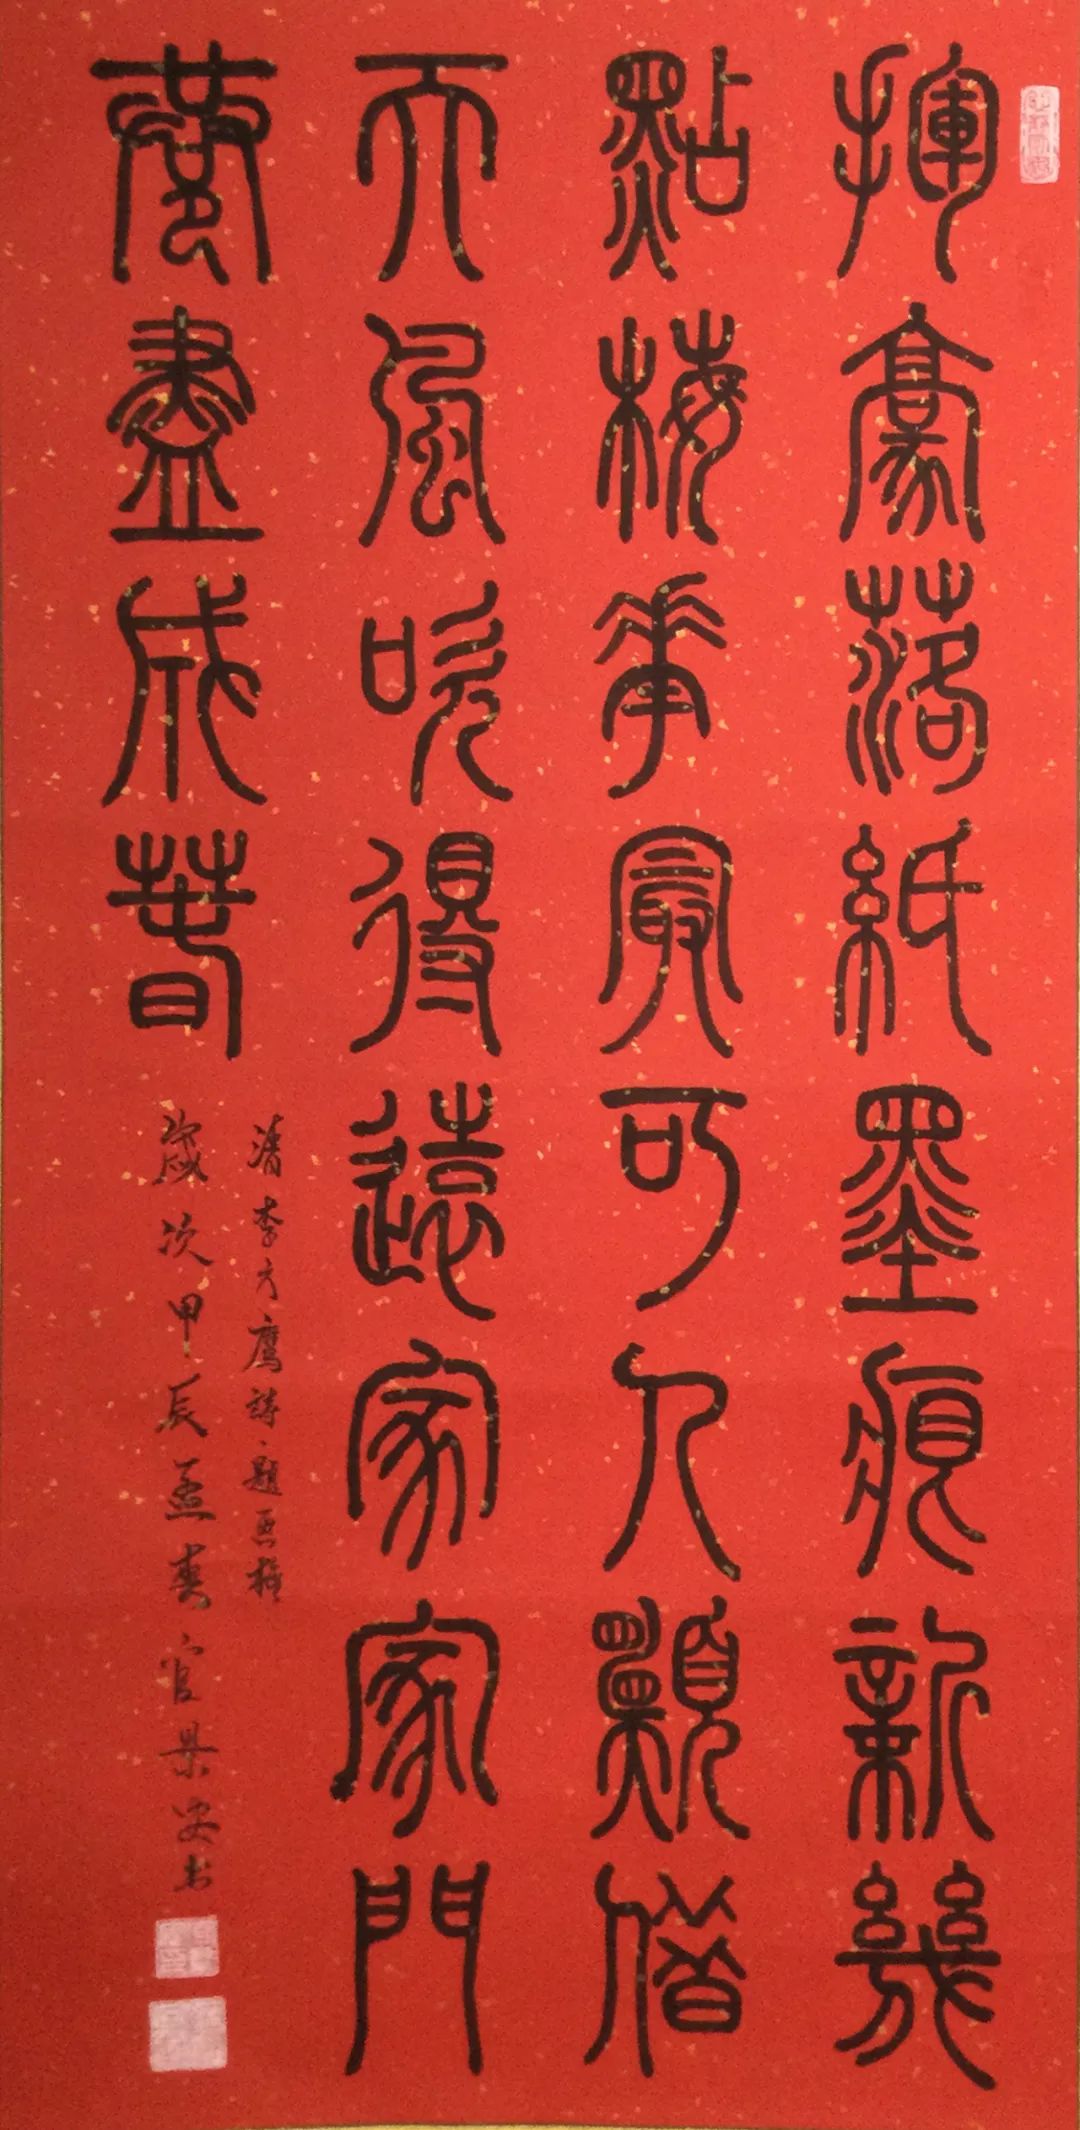 揮豪落紙墨痕新幾
點梅華最可人願借
天風吹得遠家家門
巷盡成春
清李方膺詩題画梅
歲次甲辰孟夏官